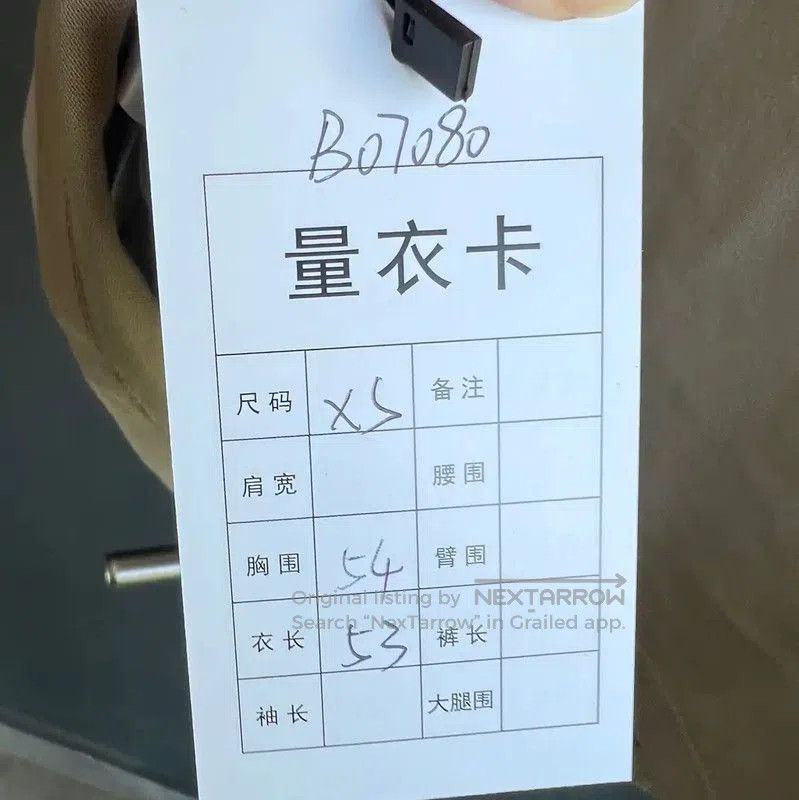 B07080
量衣卡
尺码 XS 备注
肩宽 腰围
胸围 54 臂围
Original listing by NEXTARROW
Search "NexTarrow" in Grailed app.
衣长 53 裤长
袖长 大腿围